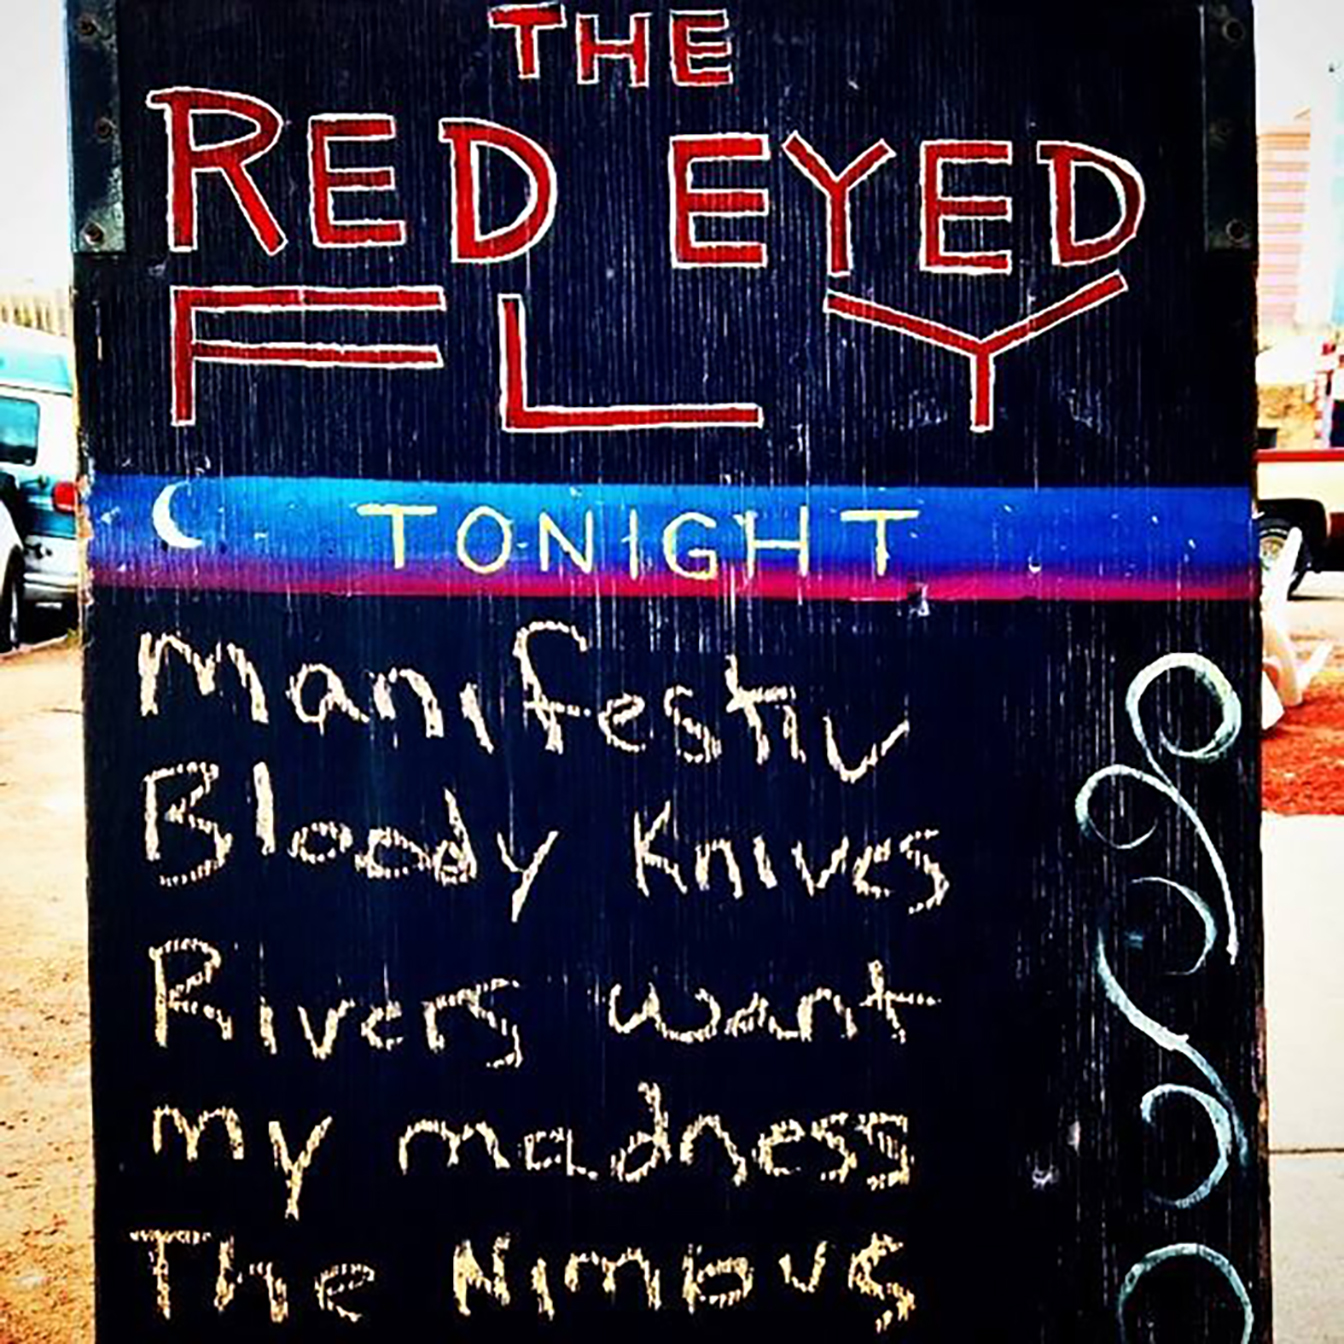 THE
RED EYED
FLY
TONIGHT
Manifestiv
Bloody Knives
Rivers want
my madness
The Nimbus